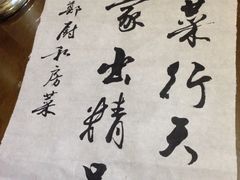 菜行天
家出精品
鄭厨私房菜